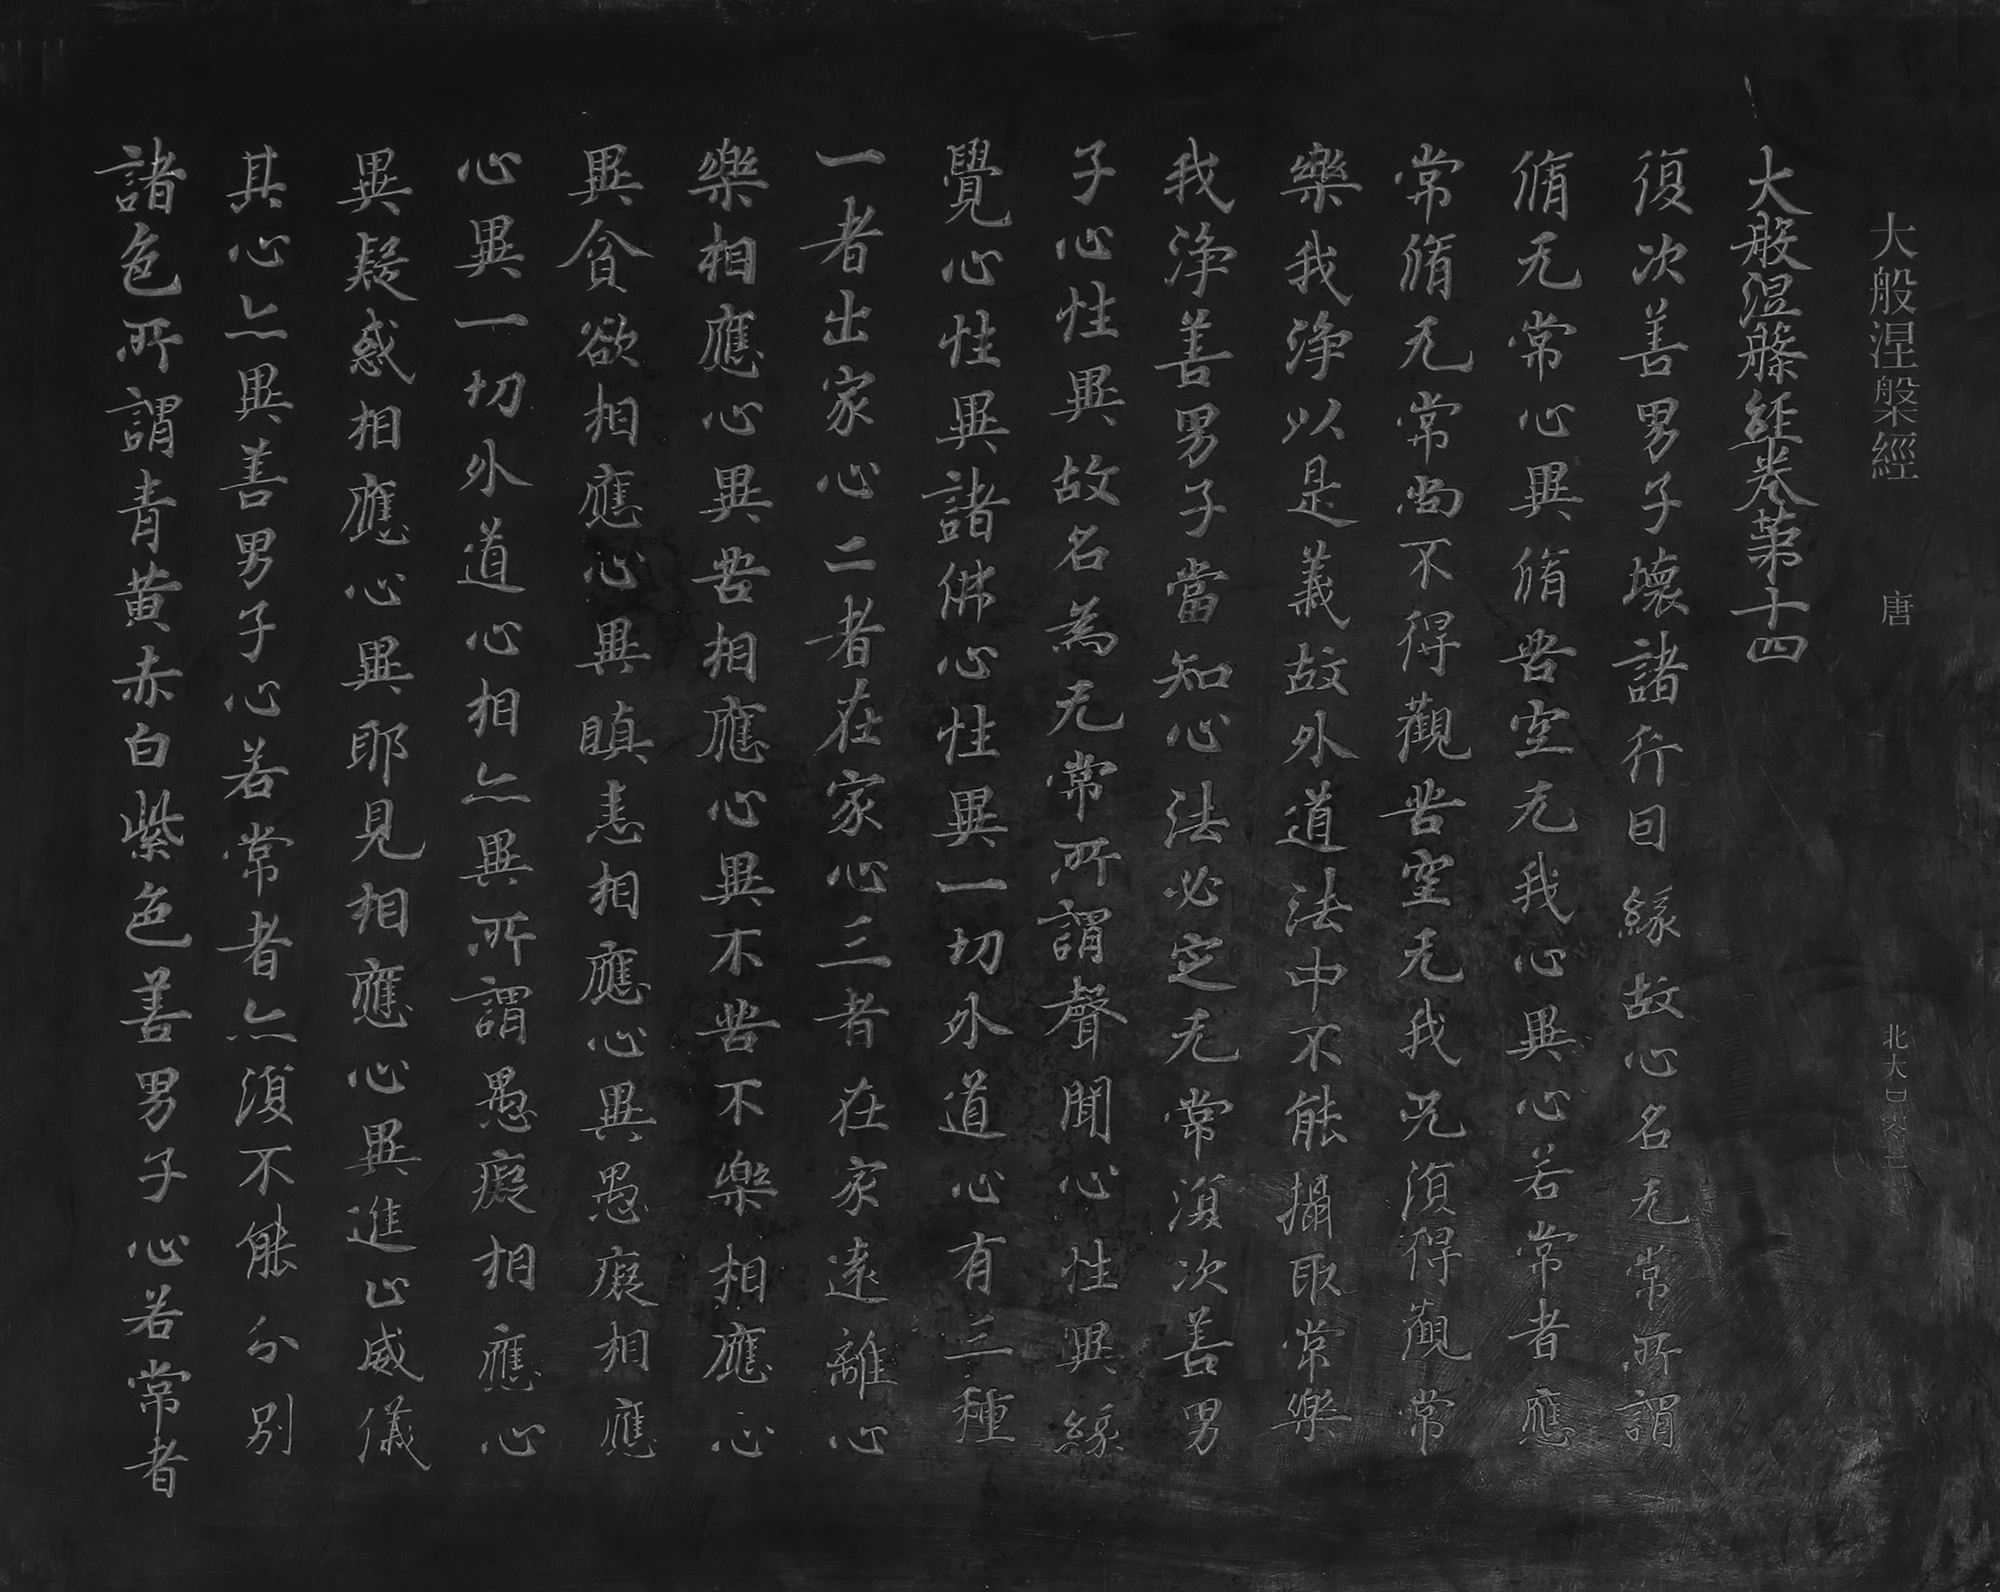 大般涅槃經 唐 北大
大般涅槃經卷第十四
復次善男子壞諸行因緣故心名无常所謂
脩无常心異脩苦空无我心異心若常者應
常脩无常尚不得觀苦空无我况復得觀常
樂我淨以是義故外道法中不能攝取常樂
我淨善男子當知心法必定无常復次善男
子心性異故名為无常所謂聲聞心性異緣
覺心性異諸佛心性異一切外道心有三種
一者出家心二者在家心三者在家遠離心
樂相應心異苦相應心異不苦不樂相應心
異貪欲相應心異瞋恚相應心異愚癡相應
心異一切外道心相亦異所謂愚癡相應心
異疑惑相應心異耶見相應心異進止威儀
其心亦異善男子心若常者亦復不能分別
諸色所謂青黃赤白紫色善男子心若常者